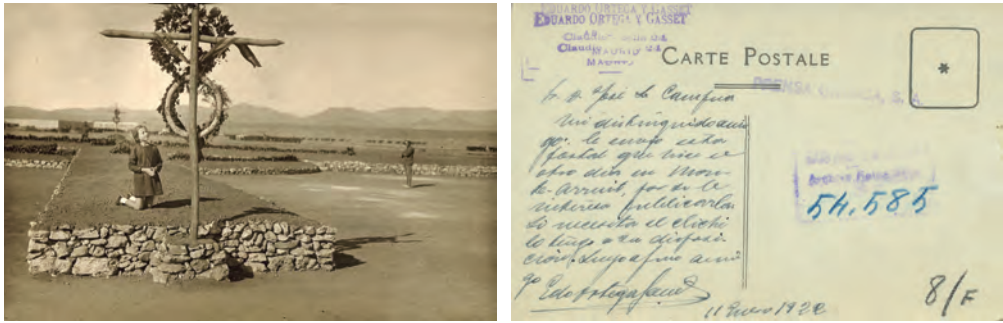 EDUARDO ORTEGA Y GASSET
EDUARDO ORTEGA Y GASSET
Claudio
MADRID
CARTE POSTALE
*
PRENSA GRÁFICA, S. A.
Sr. D. José L. Campúa
Mi distinguido ami
go: le envío esta
postal que hice el
otro día en Mon
te-Arruit, por si le
interesa publicarla.
Si necesita el cliché
lo tengo a su disposi
ción. Suyo afmo ami
go Edo Ortega Gasset
11 Enero 1922
54.585
8/F